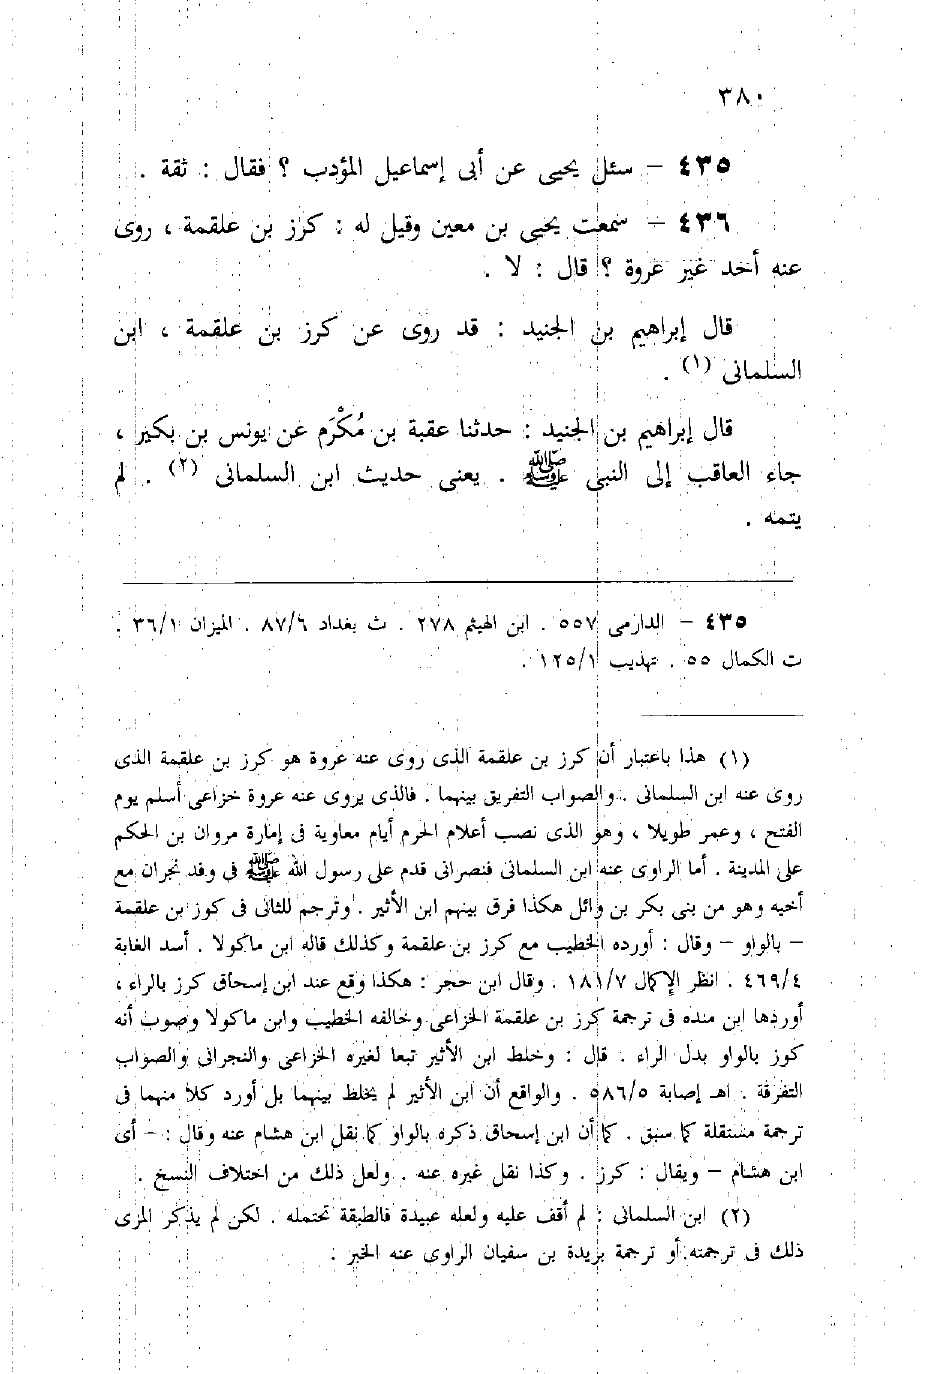 ٣٨٠
٤٣٥ – سئل يحيى عن أبى إسماعيل المؤدب ؟ فقال : ثقة .
٤٣٦ – سمعت يحيى بن معين وقيل له : كرز بن علقمة ، روى
عنه أحد غير عروة ؟ قال : لا .
قال إبراهيم بن الجنيد : قد روى عن كرز بن علقمة ، ابن
السلمانى (١) .
قال إبراهيم بن الجنيد : حدثنا عقبة بن مُكْرَم عن يونس بن بكير ،
جاء العاقب إلى النبى ﷺ . يعنى حديث ابن السلمانى (٢) . لم
يتمه .
٤٣٥ – الدارمى ٥٥٧ . ابن الهيثم ٢٧٨ . ث بغداد ٨٧/٦ . الميزان ٣٦/١ .
ت الكمال ٥٥ . تهذيب ١٢٥/١ .
(١) هذا باعتبار أن كرز بن علقمة الذى روى عنه عروة هو كرز بن علقمة الذى
روى عنه ابن السلمانى . والصواب التفريق بينهما . فالذى يروى عنه عروة خزاعى أسلم يوم
الفتح ، وعمر طويلا ، وهو الذى نصب أعلام الحرم أيام معاوية فى إمارة مروان بن الحكم
على المدينة . أما الراوى عنه ابن السلمانى فنصرانى قدم على رسول الله ﷺ فى وفد نجران مع
أخيه وهو من بنى بكر بن وائل هكذا فرق بينهم ابن الأثير . وترجم للثانى فى كوز بن علقمة
– بالواو – وقال : أورده الخطيب مع كرز بن علقمة وكذلك قاله ابن ماكولا . أسد الغابة
٤٦٩/٤ . انظر الإكمال ١٨١/٧ . وقال ابن حجر : هكذا وقع عند ابن إسحاق كرز بالراء ،
أوردها ابن منده فى ترجمة كرز بن علقمة الخزاعى وخالفه الخطيب وابن ماكولا وصوب أنه
كوز بالواو بدل الراء . قال : وخلط ابن الأثير تبعا لغيره الخزاعى والنجرانى والصواب
التفرقة . اهـ إصابة ٥٨٦/٥ . والواقع أن ابن الأثير لم يخلط بينهما بل أورد كلا منهما فى
ترجمة مستقلة كما سبق . كما أن ابن إسحاق ذكره بالواو كما نقل ابن هشام عنه وقال : – أى
ابن هشام – ويقال : كرز . وكذا نقل غيره عنه . ولعل ذلك من اختلاف النسخ .
(٢) ابن السلمانى : لم أقف عليه ولعله عبيدة فالطبقة تحتمله . لكن لم يذكر المزى
ذلك فى ترجمته أو ترجمة بريدة بن سفيان الراوى عنه الخبر .